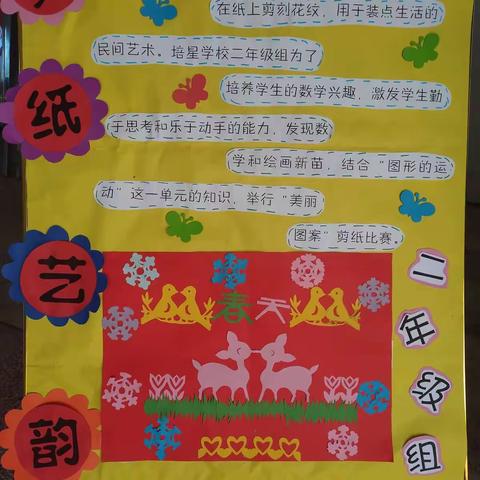 在纸上剪刻花纹，用于装点生活的
民间艺术。培星学校二年级组为了
培养学生的数学兴趣，激发学生勤
于思考和乐于动手的能力，发现数
学和绘画新苗，结合“图形的运
动”这一单元的知识，举行“美丽
图案”剪纸比赛。
纸
艺
韵
春天
二
年
级
组